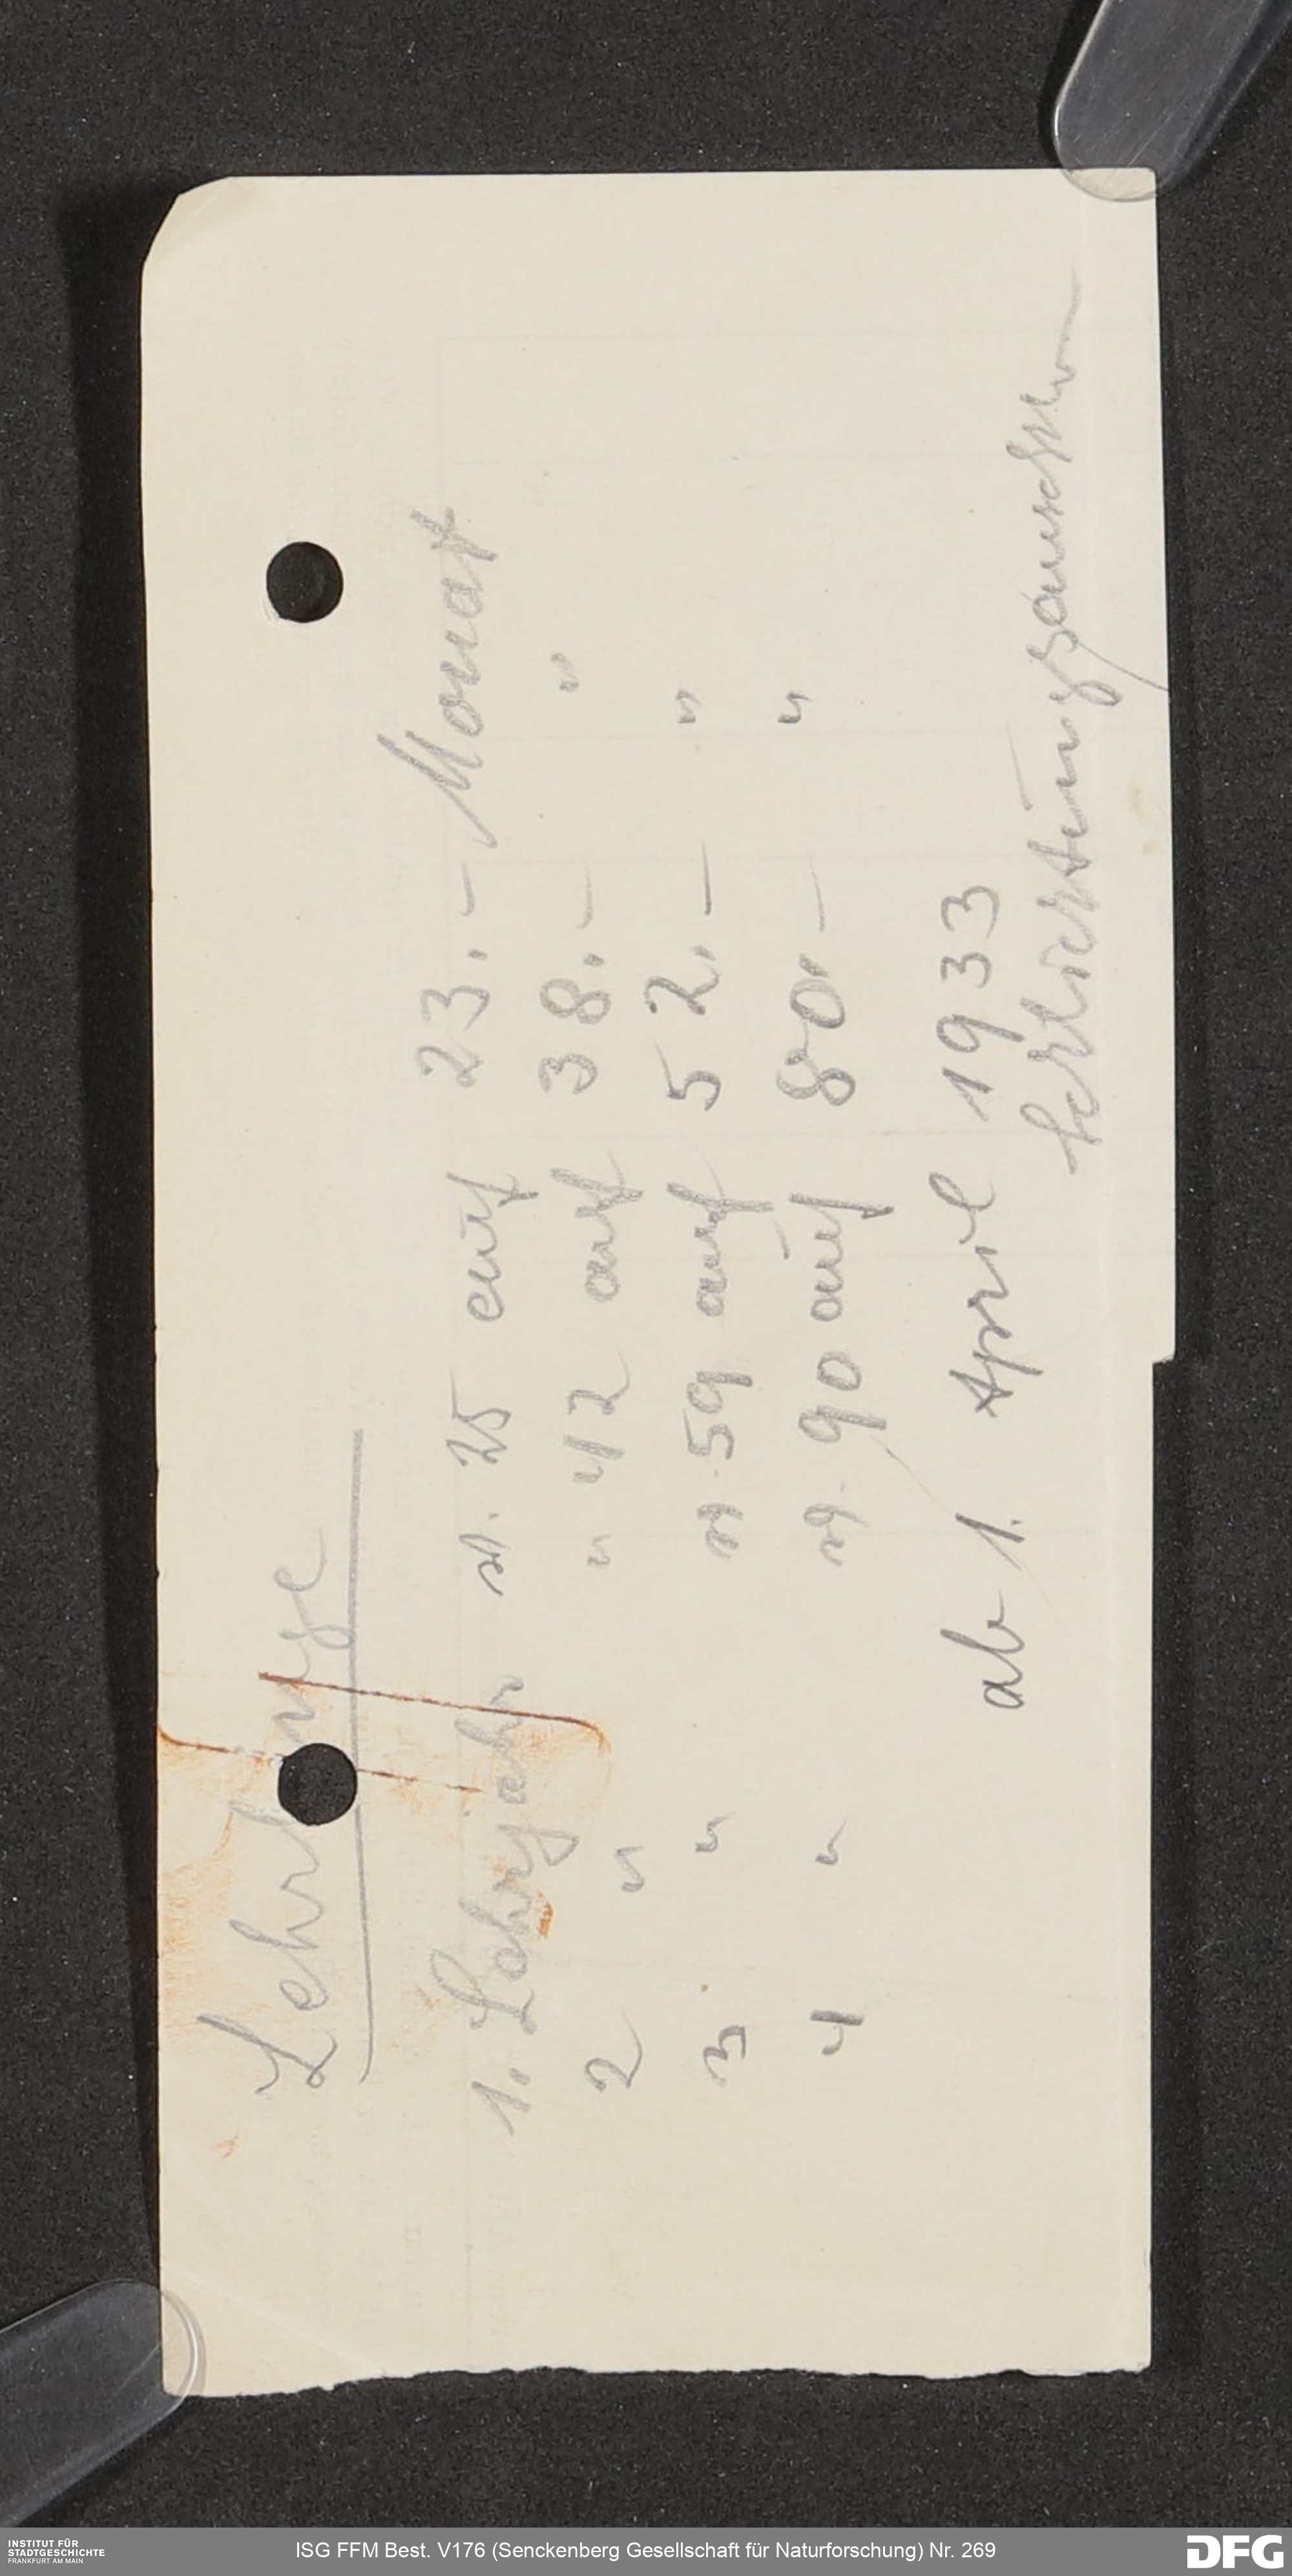 Lehrlinge
1. Lehrjahr v. 25 auf 23.- Monat
2 " " 42 auf 38.- "
3 " v. 59 auf 52.- "
4 " v. 90 auf 80.- "
ab 1. April 1933
Schlichtungsausschuss
INSTITUT FÜR
STADTGESCHICHTE
FRANKFURT AM MAIN
ISG FFM Best. V176 (Senckenberg Gesellschaft für Naturforschung) Nr. 269
DFG